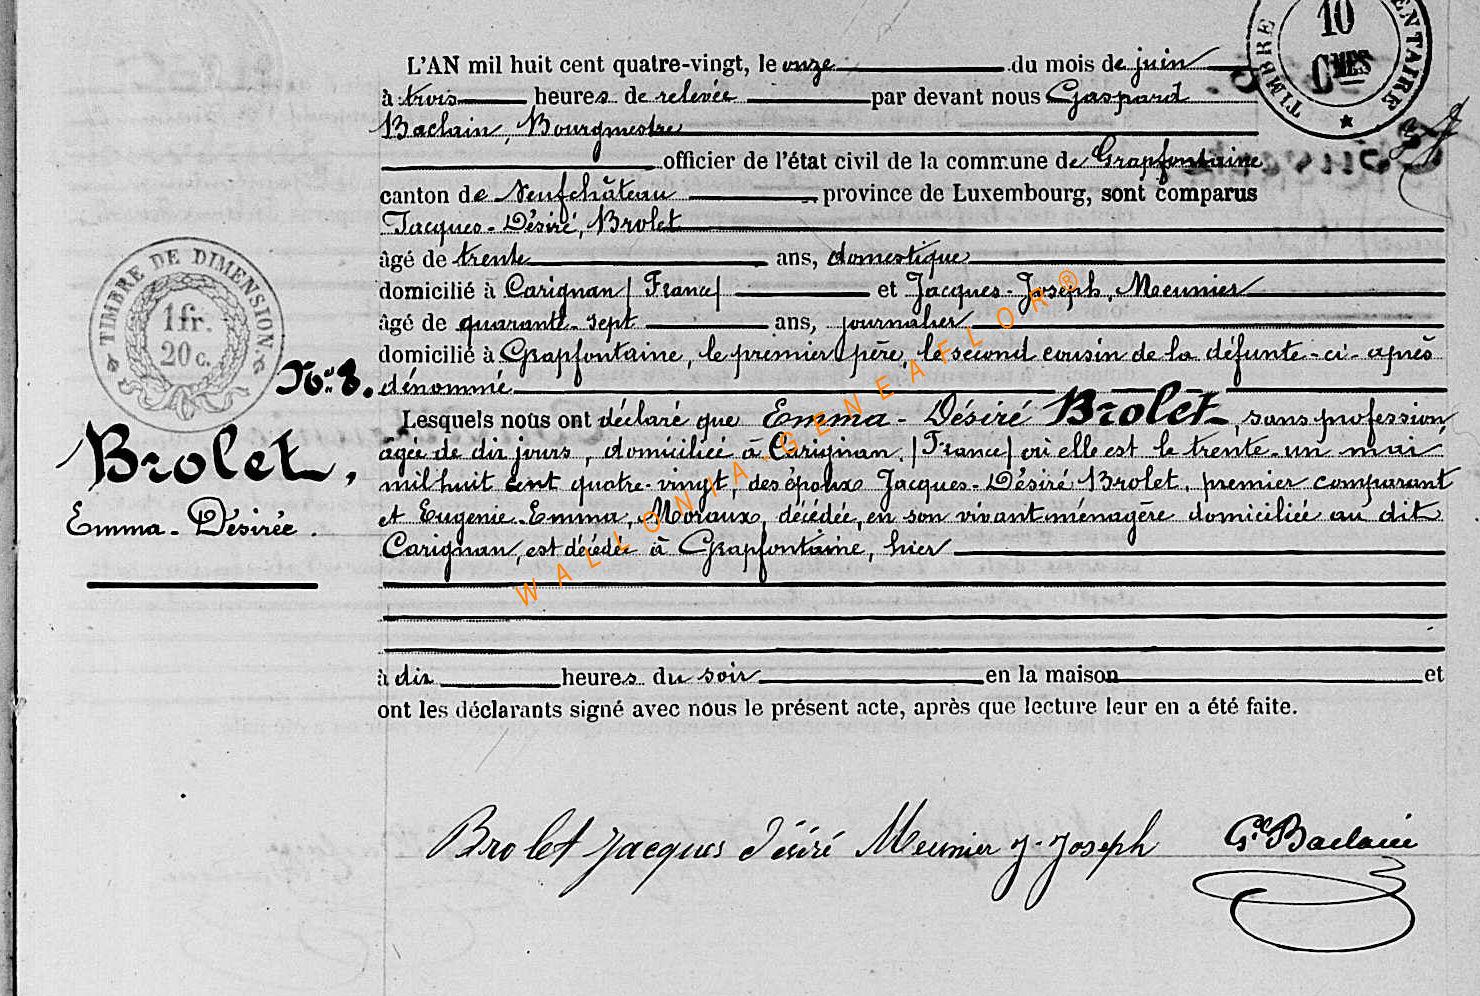 TIMBRE
10
CMES
ENTAIRE
L'AN mil huit cent quatre-vingt, le onze du mois de juin
à trois heures de relevée par devant nous Gaspard
Baclain, Bourgmestre
officier de l'état civil de la commune de Grapfontaine
canton de Neufchâteau province de Luxembourg, sont comparus
Jacques-Désiré, Brolet
âgé de trente ans, domestique
domicilié à Carignan (France) et Jacques-Joseph, Meunier
âgé de quarante-sept ans, journalier
domicilié à Grapfontaine, le premier père, le second cousin de la défunte-ci-après
dénommé
TIMBRE DE DIMENSION
1fr.
20c.
No. 8.
Brolet,
Emma-Désirée.
Lesquels nous ont déclaré que Emma-Désiré Brolet, sans profession,
âgée de dix jours, domiciliée à Carignan, (France) où elle est le trente-un mai
mil huit cent quatre-vingt, des époux Jacques-Désiré Brolet, premier comparant
et Eugenie-Emma, Moraux, décédée, en son vivant ménagère domiciliée au dit
Carignan, est décédée à Grapfontaine, hier
à dix heures du soir en la maison et
ont les déclarants signé avec nous le présent acte, après que lecture leur en a été faite.
Brolet Jacques Désiré Meunier J-Joseph Gd Baclain
WALLONIA-GENEAFLOR®